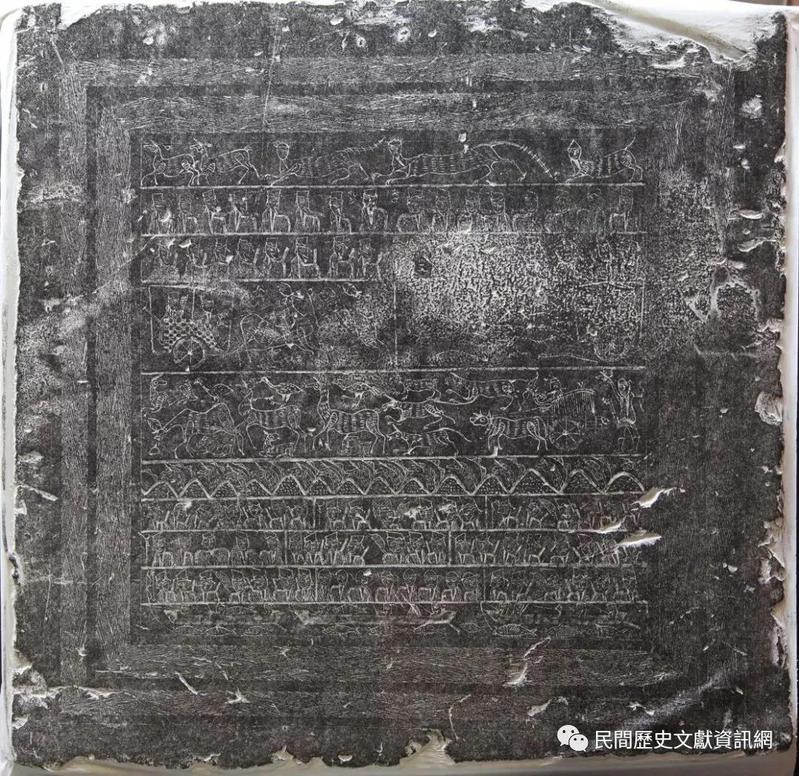 民間歷史文獻資訊網